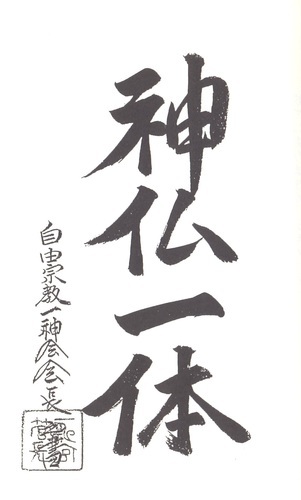 神仏一体
自由宗教一神会会長